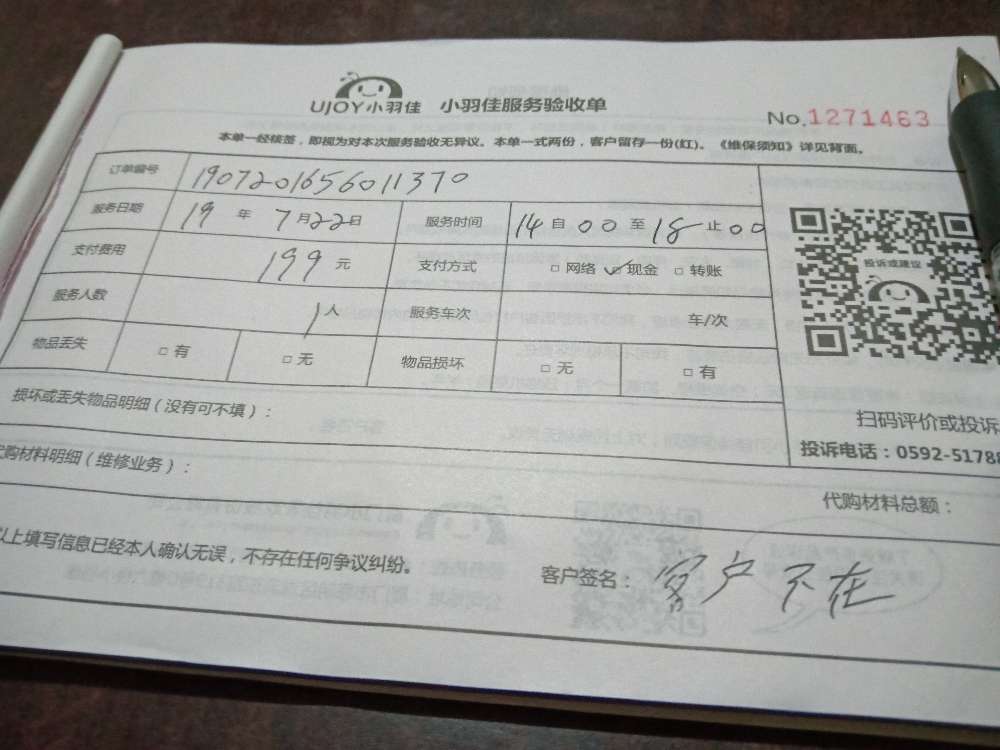 UJOY小羽佳 小羽佳服务验收单
No.1271463
本单一经核签，即视为对本次服务验收无异议。本单一式两份，客户留存一份(红)。《维保须知》详见背面。
订单编号 1907201656011370
服务日期 19 年 7月22日 服务时间 14 自 00 至 18 止 00
支付费用 199 元 支付方式 □ 网络 ☑ 现金 □ 转账
服务人数 1人 服务车次 车/次
物品丢失 □ 有 □ 无 物品损坏 □ 无 □ 有
投诉或建议
扫码评价或投诉
投诉电话：0592-51788
损坏或丢失物品明细（没有可不填）：
代购材料明细（维修业务）：
代购材料总额：
以上填写信息已经本人确认无误，不存在任何争议纠纷。
客户签名：客户不在